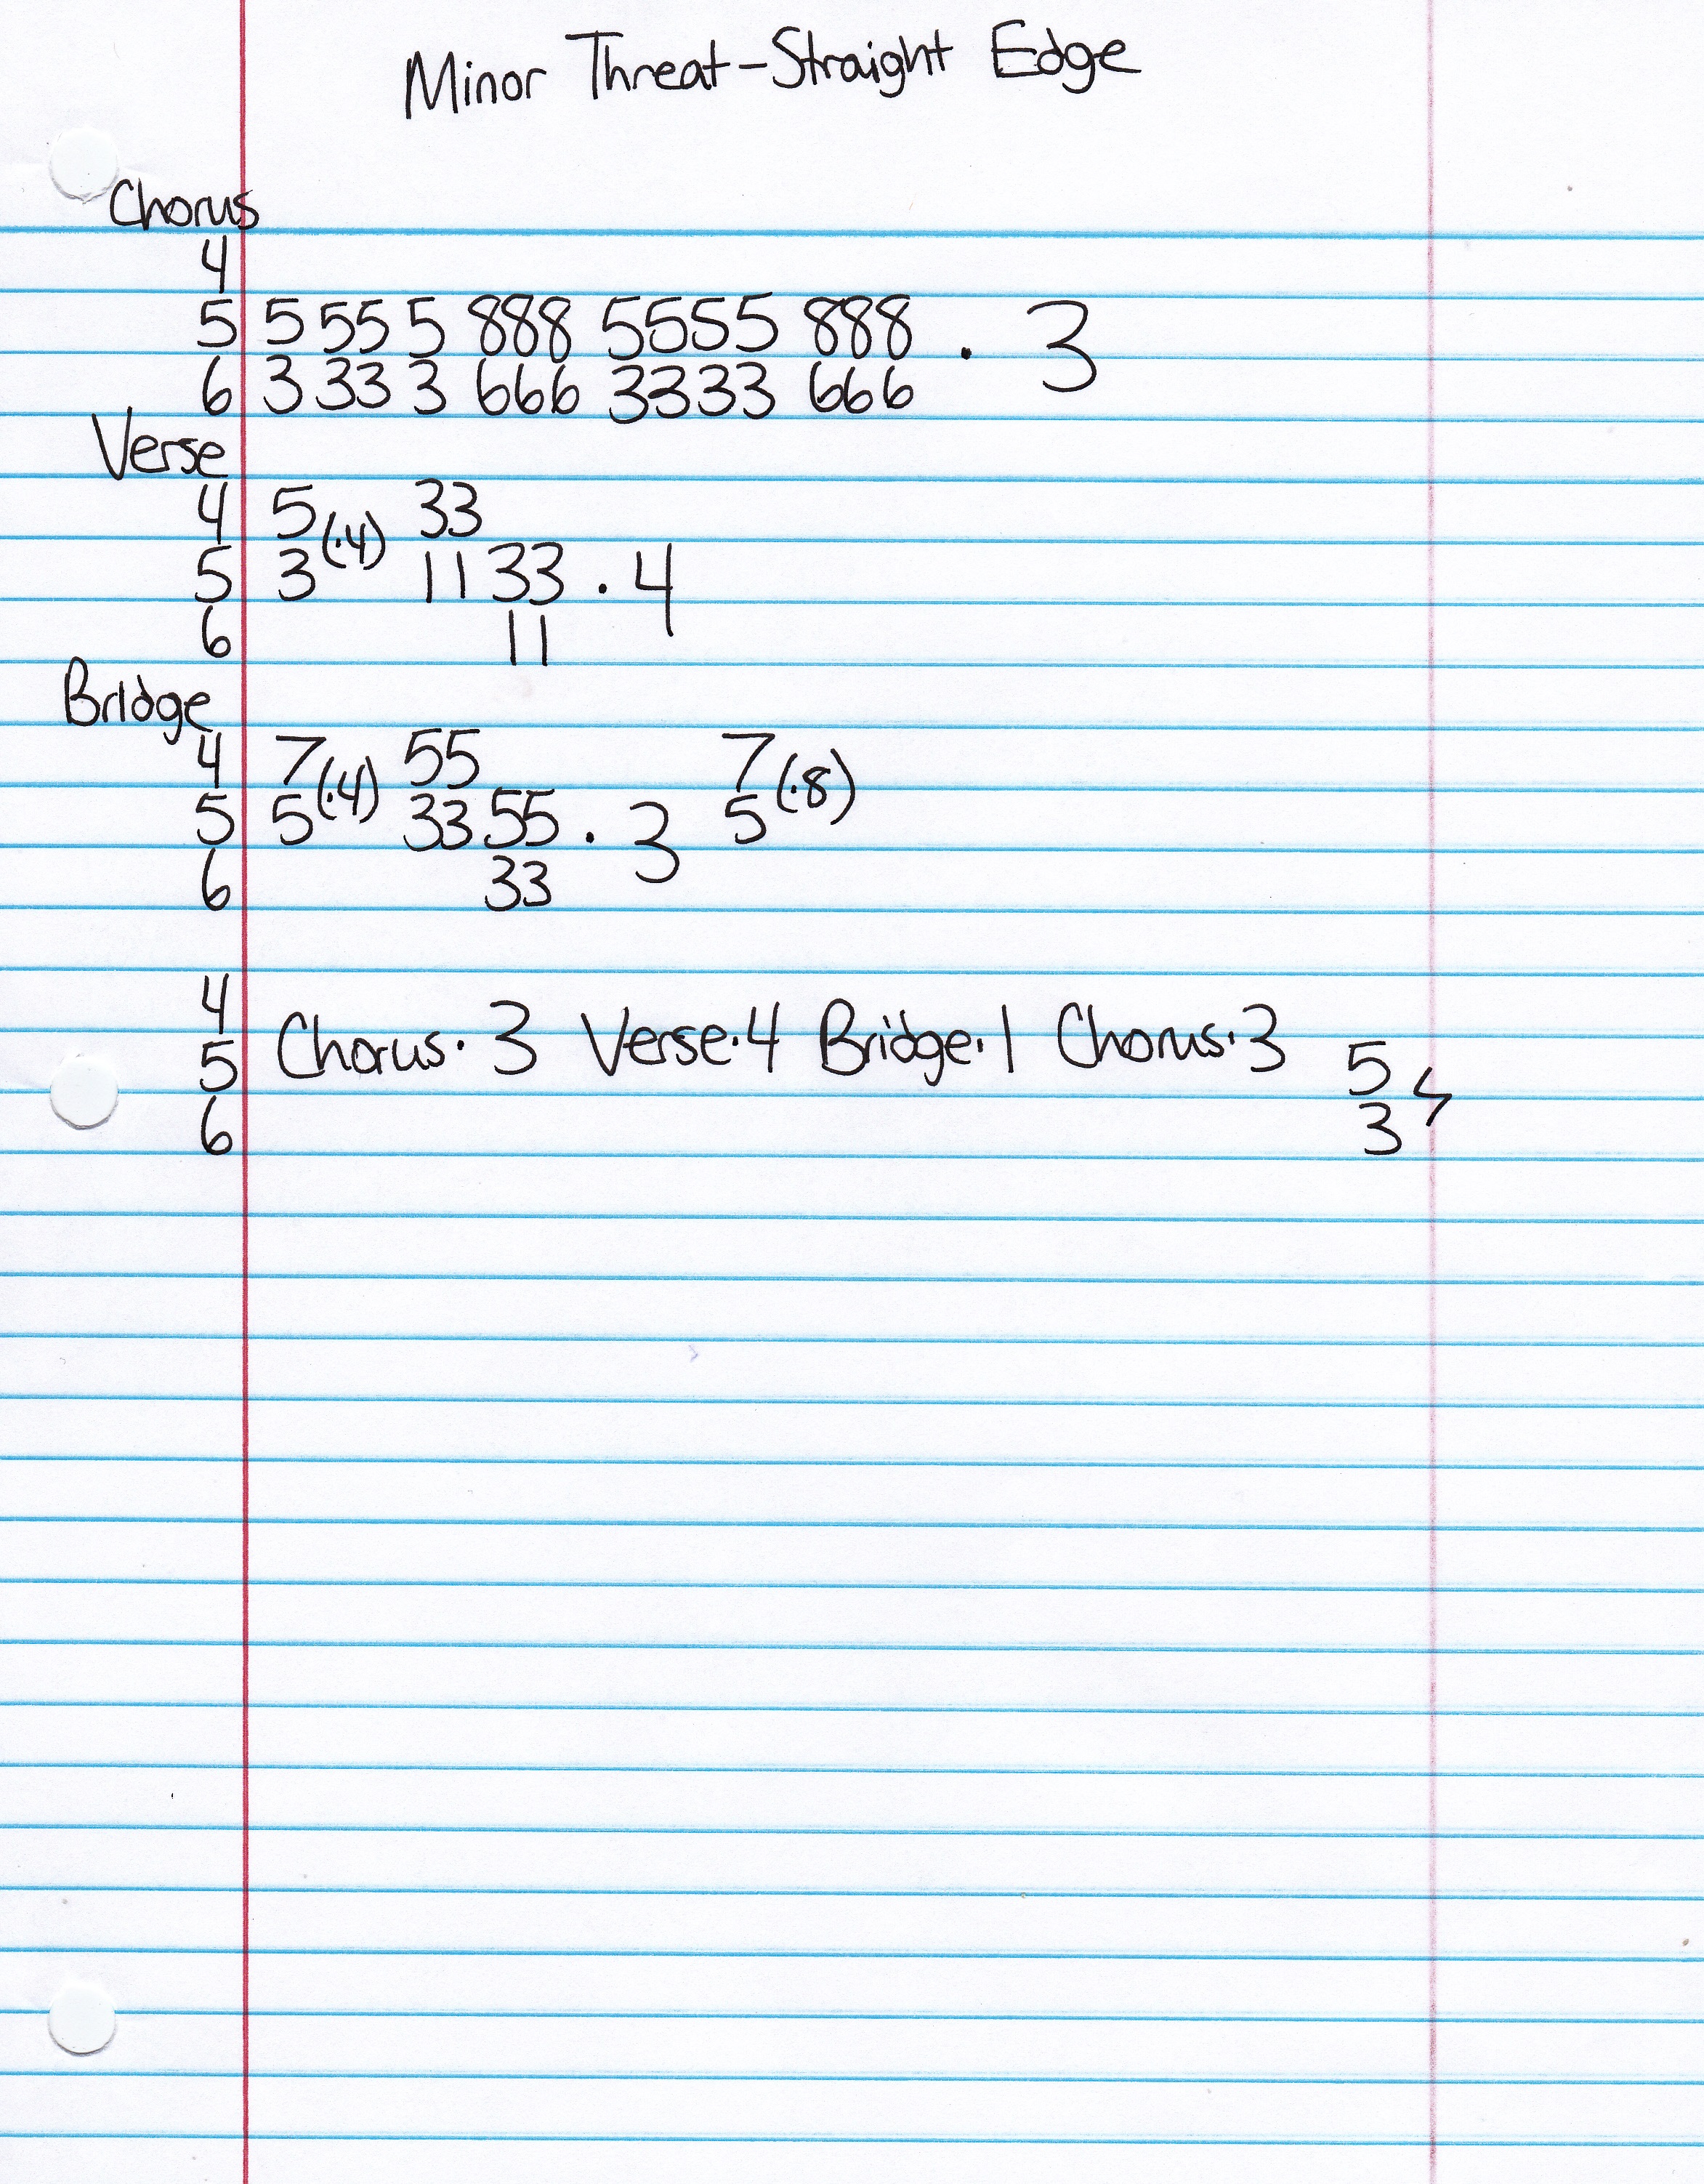 Minor Threat-Straight Edge
Chorus
4
5 5 55 5 888 5555 888 . 3
6 3 33 3 666 3333 666
Verse
4 5 (·4) 33
5 3 11 33 . 4
6 11
Bridge
4 7 (·4) 55 7 (·8)
5 5 33 55 . 3 5
6 33
4
5 Chorus· 3 Verse·4 Bridge·1 Chorus·3 5
6 3